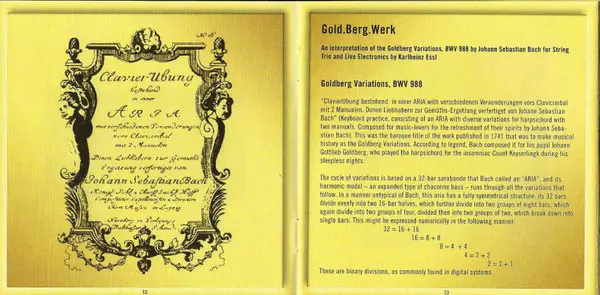 No 16
Clavier-Übung
bestehend
in einer
ARIA
mit verschiedenen Veraenderungen
vors Clavicimbal
mit 2 Manualen
Denen Liebhabern zur Gemüths-
Ergezung verfertiget von
Johann Sebastian Bach
Nürnberg in Verlegung
13
Gold.Berg.Werk
An interpretation of the Goldberg Variations, BWV 988 by Johann Sebastian Bach for String
Trio and Live Electronics by Karlheinz Essl
Goldberg Variations, BWV 988
"ClavierUbung bestehend in einer ARIA mit verschiedenen Veraenderungen vors Clavicimbal
mit 2 Manualen. Denen Liebhabern zur Gemüths-Ergetzung vertertiget von Johann Sebastian
Bach" (Keyboard practice, consisting of an ARIA with diverse variations for harpsichord with
two manuals. Composed for music-lovers for the refreshment of their spirits by Johann Seba-
stian Bach). This was the baroque title of the work published in 1741 that was to make musical
history as the Goldberg Variations. According to legend, Bach composed it for his pupil Johann
Gottlieb Goldberg, who played the harpsichord for the insomniac Count Keyserlingk during his
sleepless nights.
The cycle of variations is based on a 32-bar sarabande that Bach called an "ARIA", and its
harmonic model – an expanded type of chaconne bass – runs through all the variations that
follow. In a manner untypical of Bach, this aria has a fully symmetrical structure: its 32 bars
divide evenly into two 16-bar halves, which further divide into two groups of eight bars, which
again divide into two groups of four, divided then into two groups of two, which break down into
single bars. This might be expressed numerically in the following manner:
32 = 16 + 16
16 = 8 + 8
8 = 4 + 4
4 = 2 + 2
2 = 1 + 1
These are binary divisions, as commonly found in digital systems.
13